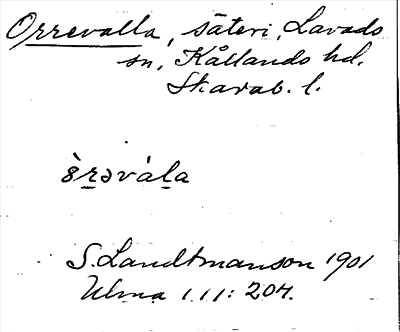 Orrevalla, säteri, Lavads
sn, Kållands hd.
Skarab. l.
ȯ̀rəvála
S. Landtmanson 1901
Ulma 1.11: 204.